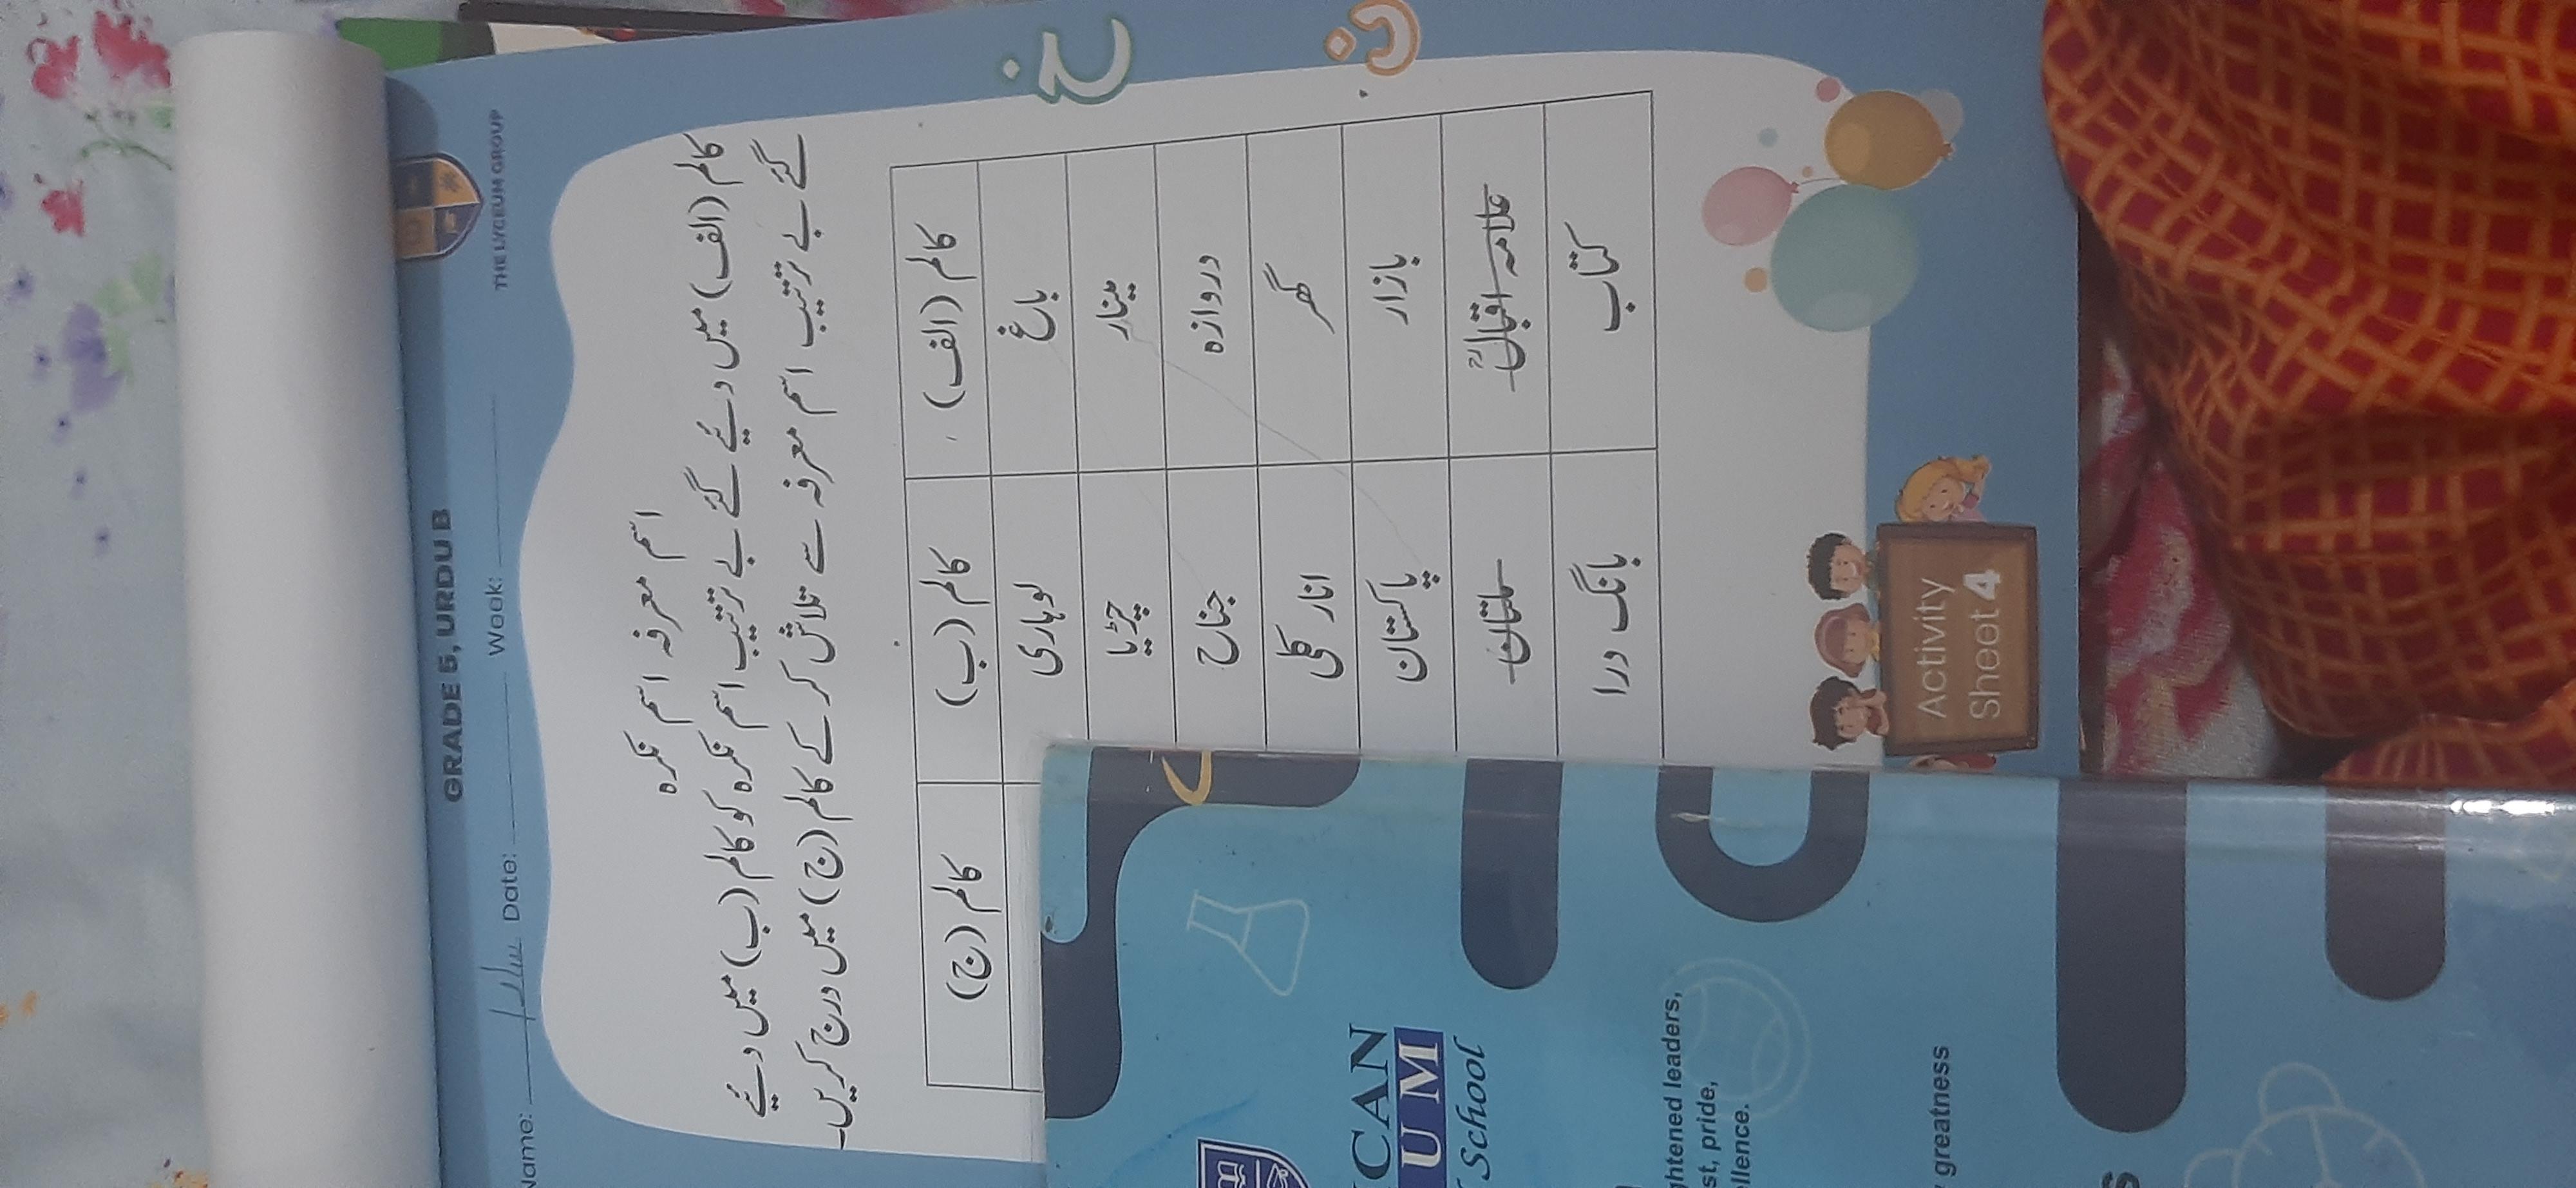 THE LYCEUM GROUP
GRADE 5, URDU B
Name: Date: Week:
اسم معرفہ اسم نکرہ
کالم (الف) میں دیئے گئے بے ترتیب اسم نکرہ کو کالم (ب) میں دیئے
گئے بے ترتیب اسم معرفہ سے تلاش کر کے کالم (ج) میں درج کریں۔
کالم (الف) کالم (ب) کالم (ج)
باغ لوہاری
مینار چڑیا
دروازہ جناح
گھر انار کلی
بازار پاکستان
علامہ اقبالؒ ملتان
کتاب بانگ درا
خ
ن
Activity
Sheet 4
CAN
UM
School
ghtened leaders,
st, pride,
ellence.
greatness
S